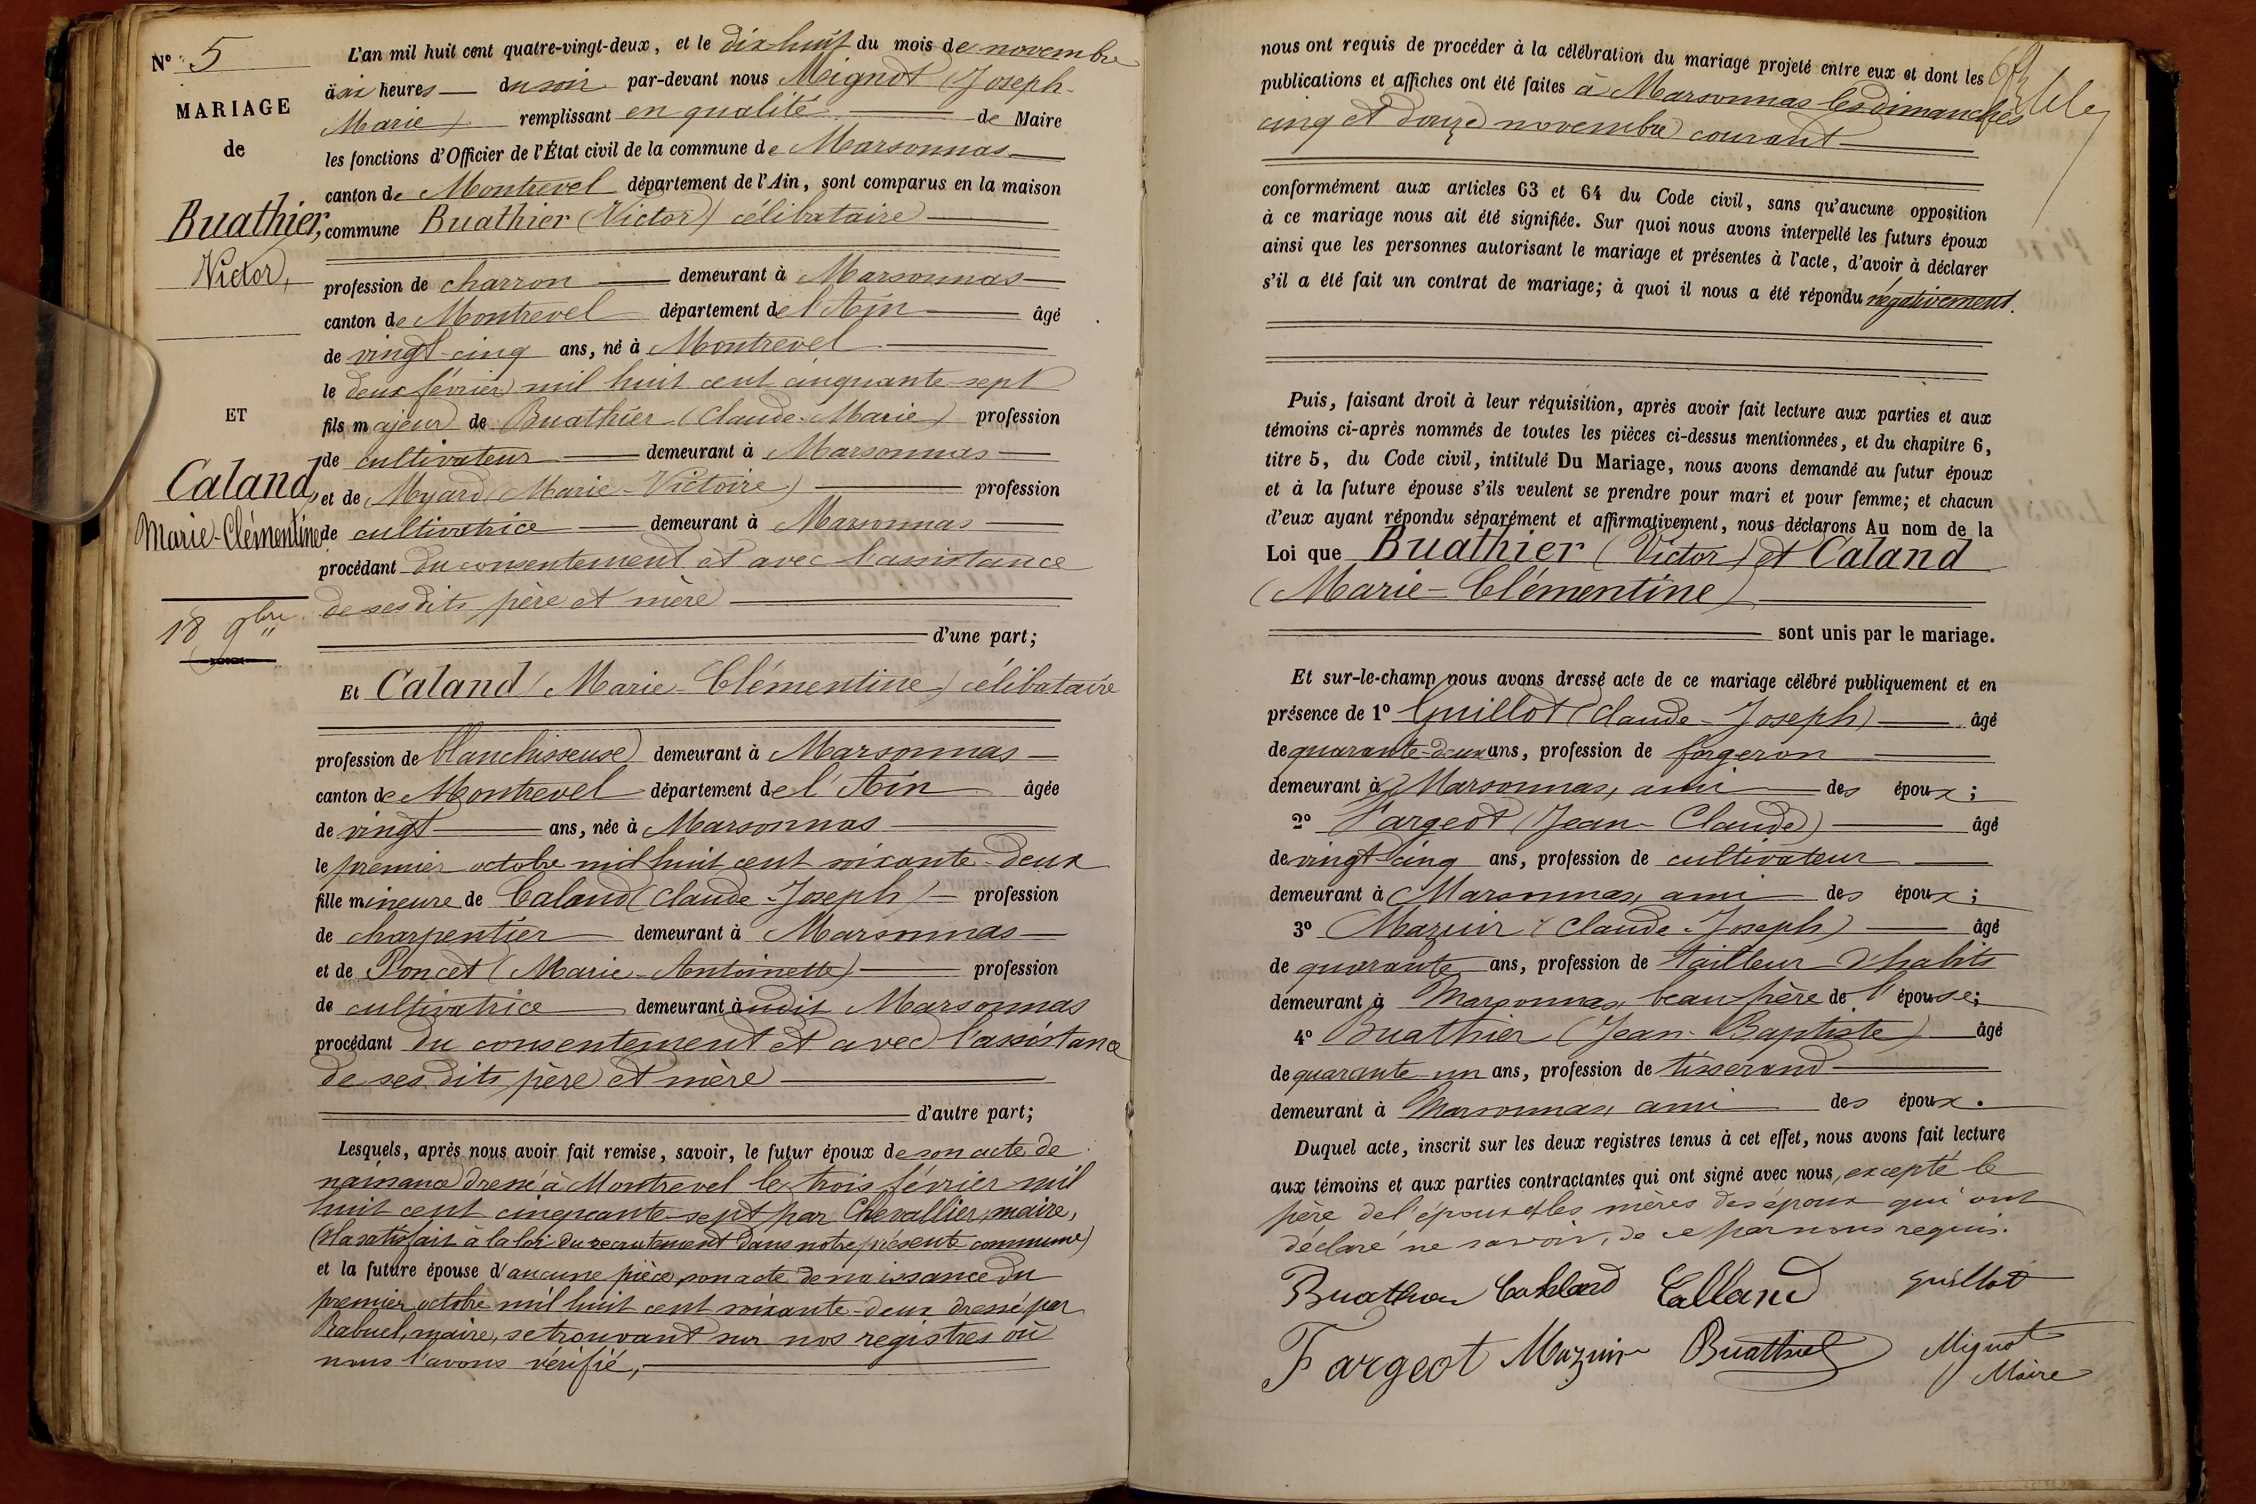 N° 5
MARIAGE
de
Buathier,
Victor,
ET
Caland,
Marie-Clémentine
18 9bre
L'an mil huit cent quatre-vingt-deux, et le dix huit du mois de novembre
à six heures du soir par-devant nous Mignot (Joseph-
Marie) remplissant en qualité de Maire
les fonctions d'Officier de l'État civil de la commune de Marsonnas
canton de Montrevel département de l'Ain, sont comparus en la maison
commune Buathier (Victor) célibataire
profession de charron demeurant à Marsonnas
canton de Montrevel département de l'Ain âgé
de vingt-cinq ans, né à Montrevel
le deux février mil huit cent cinquante-sept
fils majeur de Buathier (Claude-Marie) profession
de cultivateur demeurant à Marsonnas
et de Myard (Marie-Victoire) profession
de cultivatrice demeurant à Marsonnas
procédant du consentement et avec l'assistance
de ses dits père et mère
d'une part;
Et Caland (Marie-Clémentine) célibataire
profession de blanchisseuse demeurant à Marsonnas
canton de Montrevel département de l'Ain âgée
de vingt ans, née à Marsonnas
le premier octobre mil huit cent soixante-deux
fille mineure de Caland (Claude-Joseph) profession
de charpentier demeurant à Marsonnas
et de Poncet (Marie-Antoinette) profession
de cultivatrice demeurant audit Marsonnas
procédant du consentement et avec l'assistance
de ses dits père et mère
d'autre part;
Lesquels, après nous avoir fait remise, savoir, le futur époux de son acte de
naissance dressé à Montrevel le trois février mil
huit cent cinquante-sept par Chevallier, maire,
(Il a satisfait à la loi du recrutement dans notre présente commune)
et la future épouse d'aucune pièce, son acte de naissance du
premier octobre mil huit cent soixante-deux dressé par
Rabuel, maire, se trouvant sur nos registres où
nous l'avons vérifié,
nous ont requis de procéder à la célébration du mariage projeté entre eux et dont les
publications et affiches ont été faites à Marsonnas les dimanches
cinq et douze novembre courant
conformément aux articles 63 et 64 du Code civil, sans qu'aucune opposition
à ce mariage nous ait été signifiée. Sur quoi nous avons interpellé les futurs époux
ainsi que les personnes autorisant le mariage et présentes à l'acte, d'avoir à déclarer
s'il a été fait un contrat de mariage; à quoi il nous a été répondu négativement.
Puis, faisant droit à leur réquisition, après avoir fait lecture aux parties et aux
témoins ci-après nommés de toutes les pièces ci-dessus mentionnées, et du chapitre 6,
titre 5, du Code civil, intitulé Du Mariage, nous avons demandé au futur époux
et à la future épouse s'ils veulent se prendre pour mari et pour femme; et chacun
d'eux ayant répondu séparément et affirmativement, nous déclarons Au nom de la
Loi que Buathier (Victor) et Caland
(Marie-Clémentine)
sont unis par le mariage.
Et sur-le-champ nous avons dressé acte de ce mariage célébré publiquement et en
présence de 1° Guillot (Claude-Joseph) âgé
de quarante-deux ans, profession de forgeron
demeurant à Marsonnas, ami des époux;
2° Fargeot (Jean-Claude) âgé
de vingt-cinq ans, profession de cultivateur
demeurant à Marsonnas, ami des époux;
3° Mazuir (Claude-Joseph) âgé
de quarante ans, profession de tailleur d'habits
demeurant à Marsonnas, beau-frère de l'épouse;
4° Buathier (Jean-Baptiste) âgé
de quarante-un ans, profession de tisserand
demeurant à Marsonnas, ami des époux.
Duquel acte, inscrit sur les deux registres tenus à cet effet, nous avons fait lecture
aux témoins et aux parties contractantes qui ont signé avec nous, excepté le
père de l'époux et les mères des époux qui ont
déclaré ne savoir, de ce par nous requis.
Buathier Calland Calland Guillot
Fargeot Mazuir Buathier Mignot
Maire